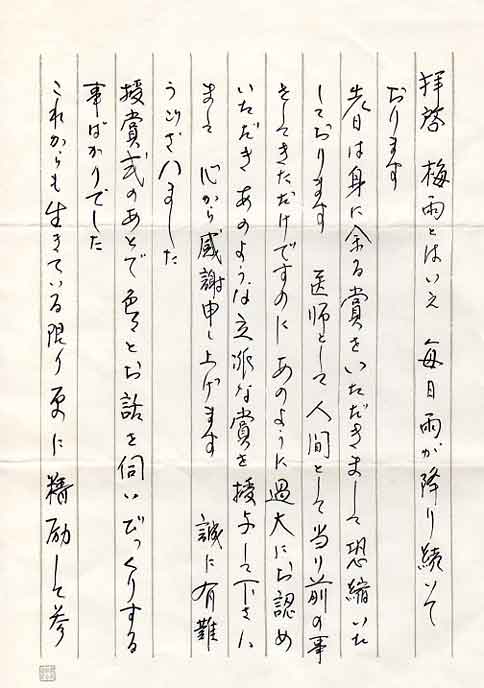 拝啓 梅雨とはいえ 毎日雨が降り続いて
おります
先日は身に余る賞をいただきまして恐縮いた
しております 医師として人間として当り前の事
をしてきただけですのに あのように過大にお認め
いただき あのような立派な賞を授与して下さい
まして 心から感謝申し上げます 誠に有難
うございました
授賞式のあとで色々とお話を伺いびっくりする
事ばかりでした
これからも生きている限り更に精励して参